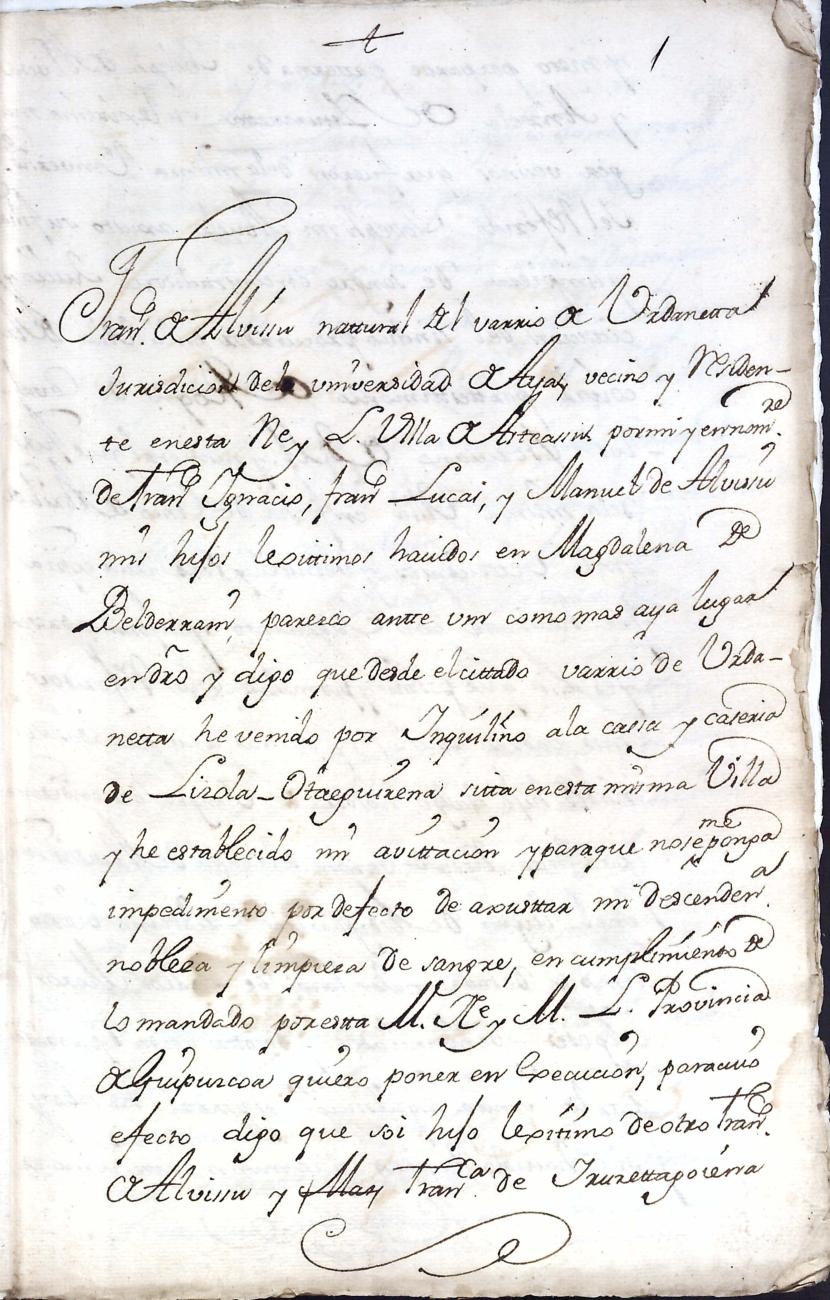 1
Fran.co de Alvissu nattural del varrio de Urdanetta
Jurisdicion dela vniversidad de Aya, vecino y Residen-
te enesta Ne. y L. Villa de Arteassu por mi y en nom.re
de Fran.co Ignacio, fran.co Lucas, y Manuel de Alvissu
mis hijos lexittimos havidos en Magdalena de
Belderrain, paresco antte vm como mas aya lugar
en dro y digo que desde el cittado varrio de Urda-
netta he venido por Inquilino a la cassa y caseria
de Lizola-Otaeguirena sitta enesta misma Villa
y he establecido mi avittacion y para que no se me ponga
impedimento por defecto de axusttar mi descenden.a
nobleza y limpieza de sangre, en cumplimiento de
lo mandado por estta M. Ne. y M. L. Provincia
de Guipuscoa quiero poner en Execucion, para cuio
efecto digo que soi hijo lexitimo de otro Fran.co
de Alvissu y Mar Fran.ca de Irurettagoiena